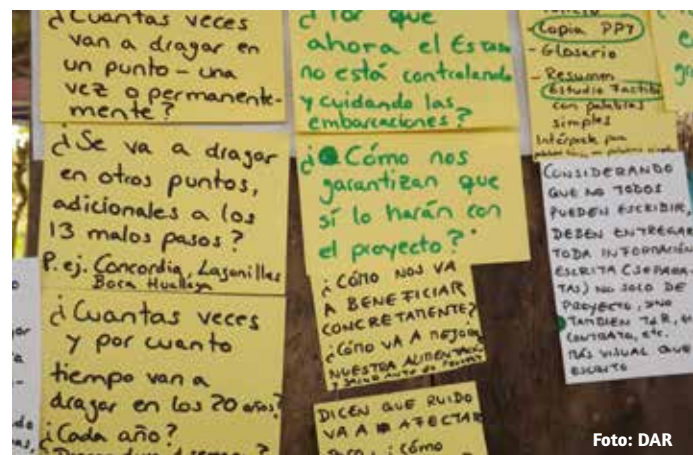 ¿Cuantas veces
van a dragar en
un punto - una
vez o permanente-
mente?
¿Se va a dragar
en otros puntos,
adicionales a los
13 malos pasos?
P. ej. Concordia, Lagunillas
Boca Huallaga
¿Cuantas veces
y por cuanto
tiempo van a
dragar en los 20 años?
¿Cada año?
¿Por que
ahora el Estado
no está controlando
y cuidando las
embarcaciones?
¿Cómo nos
garantizan que
sí lo harán con
el proyecto?
¿CÓMO NOS VA
A BENEFICIAR
CONCRETAMENTE?
¿CÓMO VA A MEJORAR
NUESTRA ALIMENTACIÓN
DICEN QUE RUIDO
VA A AFECTAR
¿cómo
- Copia PPT
- Glosario
- Resumen
Estudio Factibi
con palabras
simples
Intérprete para
CONSIDERANDO
QUE NO TODOS
PUEDEN ESCRIBIR,
DEBEN ENTREGAR
TODA INFORMACIÓN
ESCRITA (SEPARA-
TAS) NO SOLO DE
PROYECTO, SINO
TAMBIEN TdR,
CONTRATO, ETC.
MÁS VISUAL QUE
ESCRITO
Foto: DAR